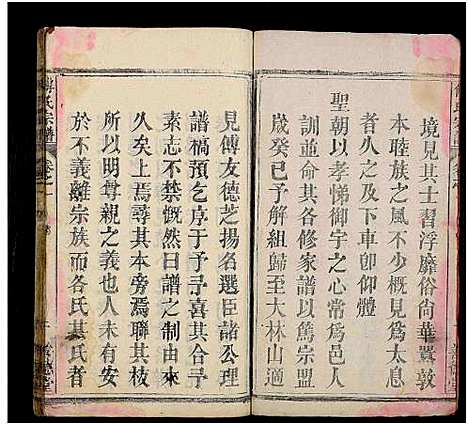 境見其士習浮靡俗尙華囂敦
本睦族之風不少概見爲太息
者久之及下車卽仰體
聖朝以孝悌御宇之心常爲邑人
訓並命各修家譜以篤宗盟
歲癸巳予解組歸至大林山適
見傅友德芝揚名選臣諸公理
譜稿預乞序于予予喜其合予
素志不禁慨然曰譜之制由來
久矣上焉尋其本旁焉聯其枝
所以明尊親之義也人未有安
於不義離宗族而各氏其氏者
傅氏宗譜
卷之一